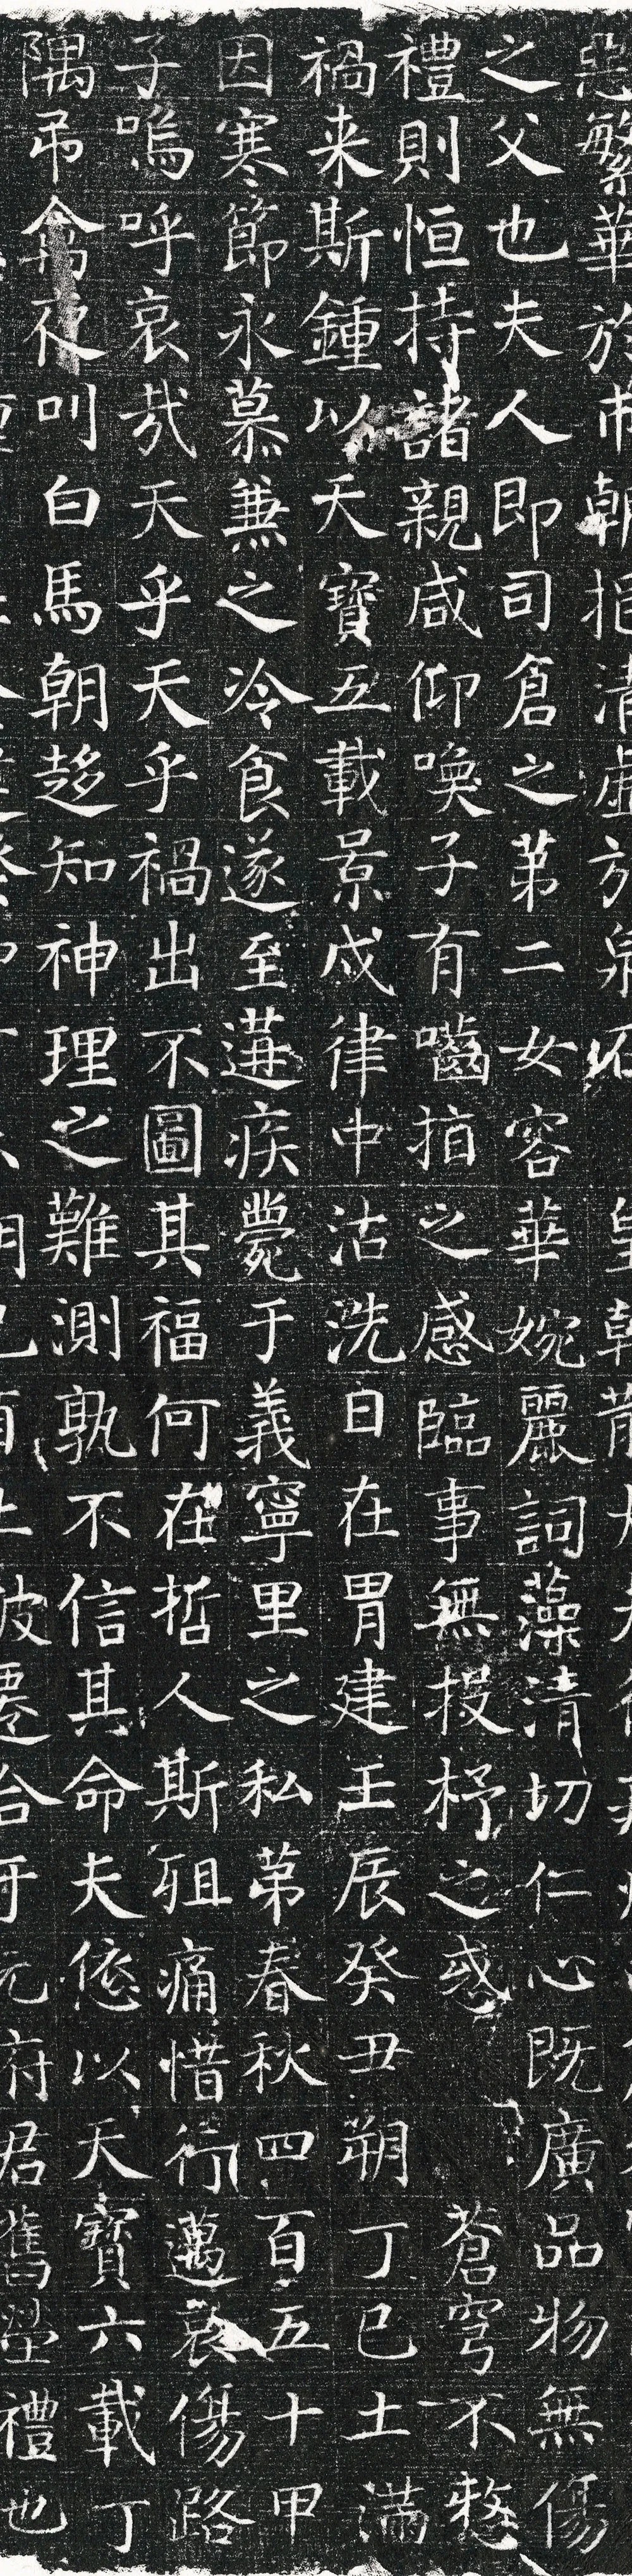 惡繁華於市朝挹清虛於泉石 皇朝散
之父也夫人即司倉之苐二女容華婉麗詞藻清切仁心既廣品物無傷
禮則恒持諸親咸仰喚子有嚙指之感臨事無投杼之惑 蒼穹不憗
禍来斯鍾以天寶五載景戍律中沽洗日在胃建王辰癸丑朔丁巳土滿
因寒節永慕兼之冷食遂至遘疾薨于義寧里之私苐春秋四百五十甲
子嗚呼哀哉天乎天乎禍出不圖其福何在哲人斯殂痛惜行邁哀傷路
隅吊禽夜叫白馬朝趍知神理之難測孰不信其命夫以天寶六載丁
府君舊塋禮也